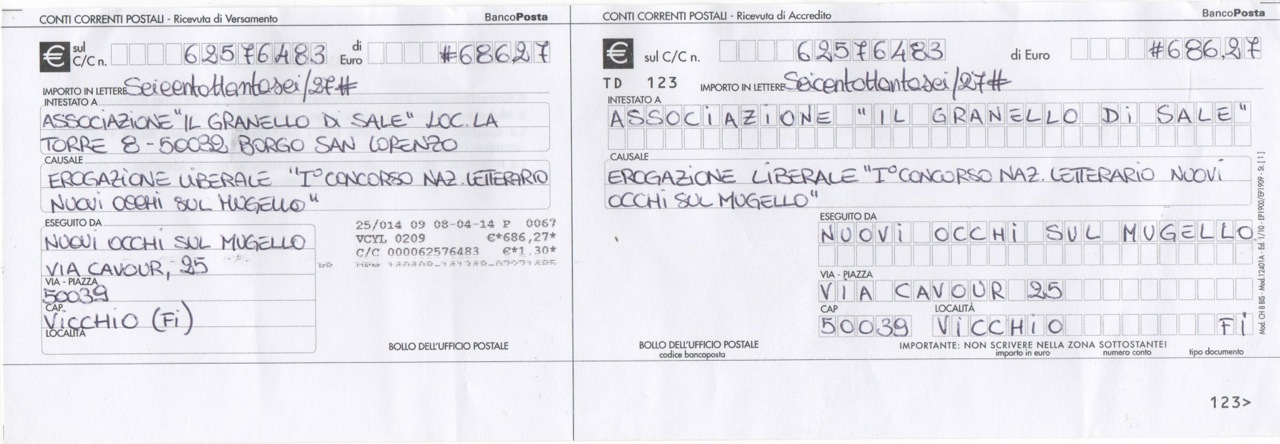 CONTI CORRENTI POSTALI - Ricevuta di Versamento BancoPosta
€ sul C/C n. 62576483 di Euro #686,27
IMPORTO IN LETTERE Seicentottantasei/27#
INTESTATO A
ASSOCIAZIONE "IL GRANELLO Di SALE" LOC. LA
TORRE 8 - 50032 BORGO SAN LORENZO
CAUSALE
EROGAZIONE LIBERALE "I° CONCORSO NAZ. LETTERARIO
NUOVI OCCHI SUL MUGELLO"
ESEGUITO DA
NUOVI OCCHI SUL MUGELLO
VIA CAVOUR, 25
VIA - PIAZZA
50039
CAP
VICCHIO (Fi)
LOCALITÀ
25/014 09 08-04-14 P 0067
VCYL 0209 €*686,27*
C/C 000062576483 €*1,30*
BOLLO DELL'UFFICIO POSTALE
CONTI CORRENTI POSTALI - Ricevuta di Accredito BancoPosta
€ sul C/C n. 62576483 di Euro #686,27
TD 123 IMPORTO IN LETTERE Seicentottantasei/27#
INTESTATO A
ASSOCIAZIONE "IL GRANELLO Di SALE"
CAUSALE
EROGAZIONE LIBERALE "I° CONCORSO NAZ. LETTERARIO NUOVI
OCCHI SUL MUGELLO"
ESEGUITO DA
NUOVI OCCHI SUL MUGELLO
VIA - PIAZZA
VIA CAVOUR 25
CAP LOCALITÀ
50039 VICCHIO Fi
BOLLO DELL'UFFICIO POSTALE
codice bancoposta
IMPORTANTE: NON SCRIVERE NELLA ZONA SOTTOSTANTE!
importo in euro numero conto tipo documento
123>